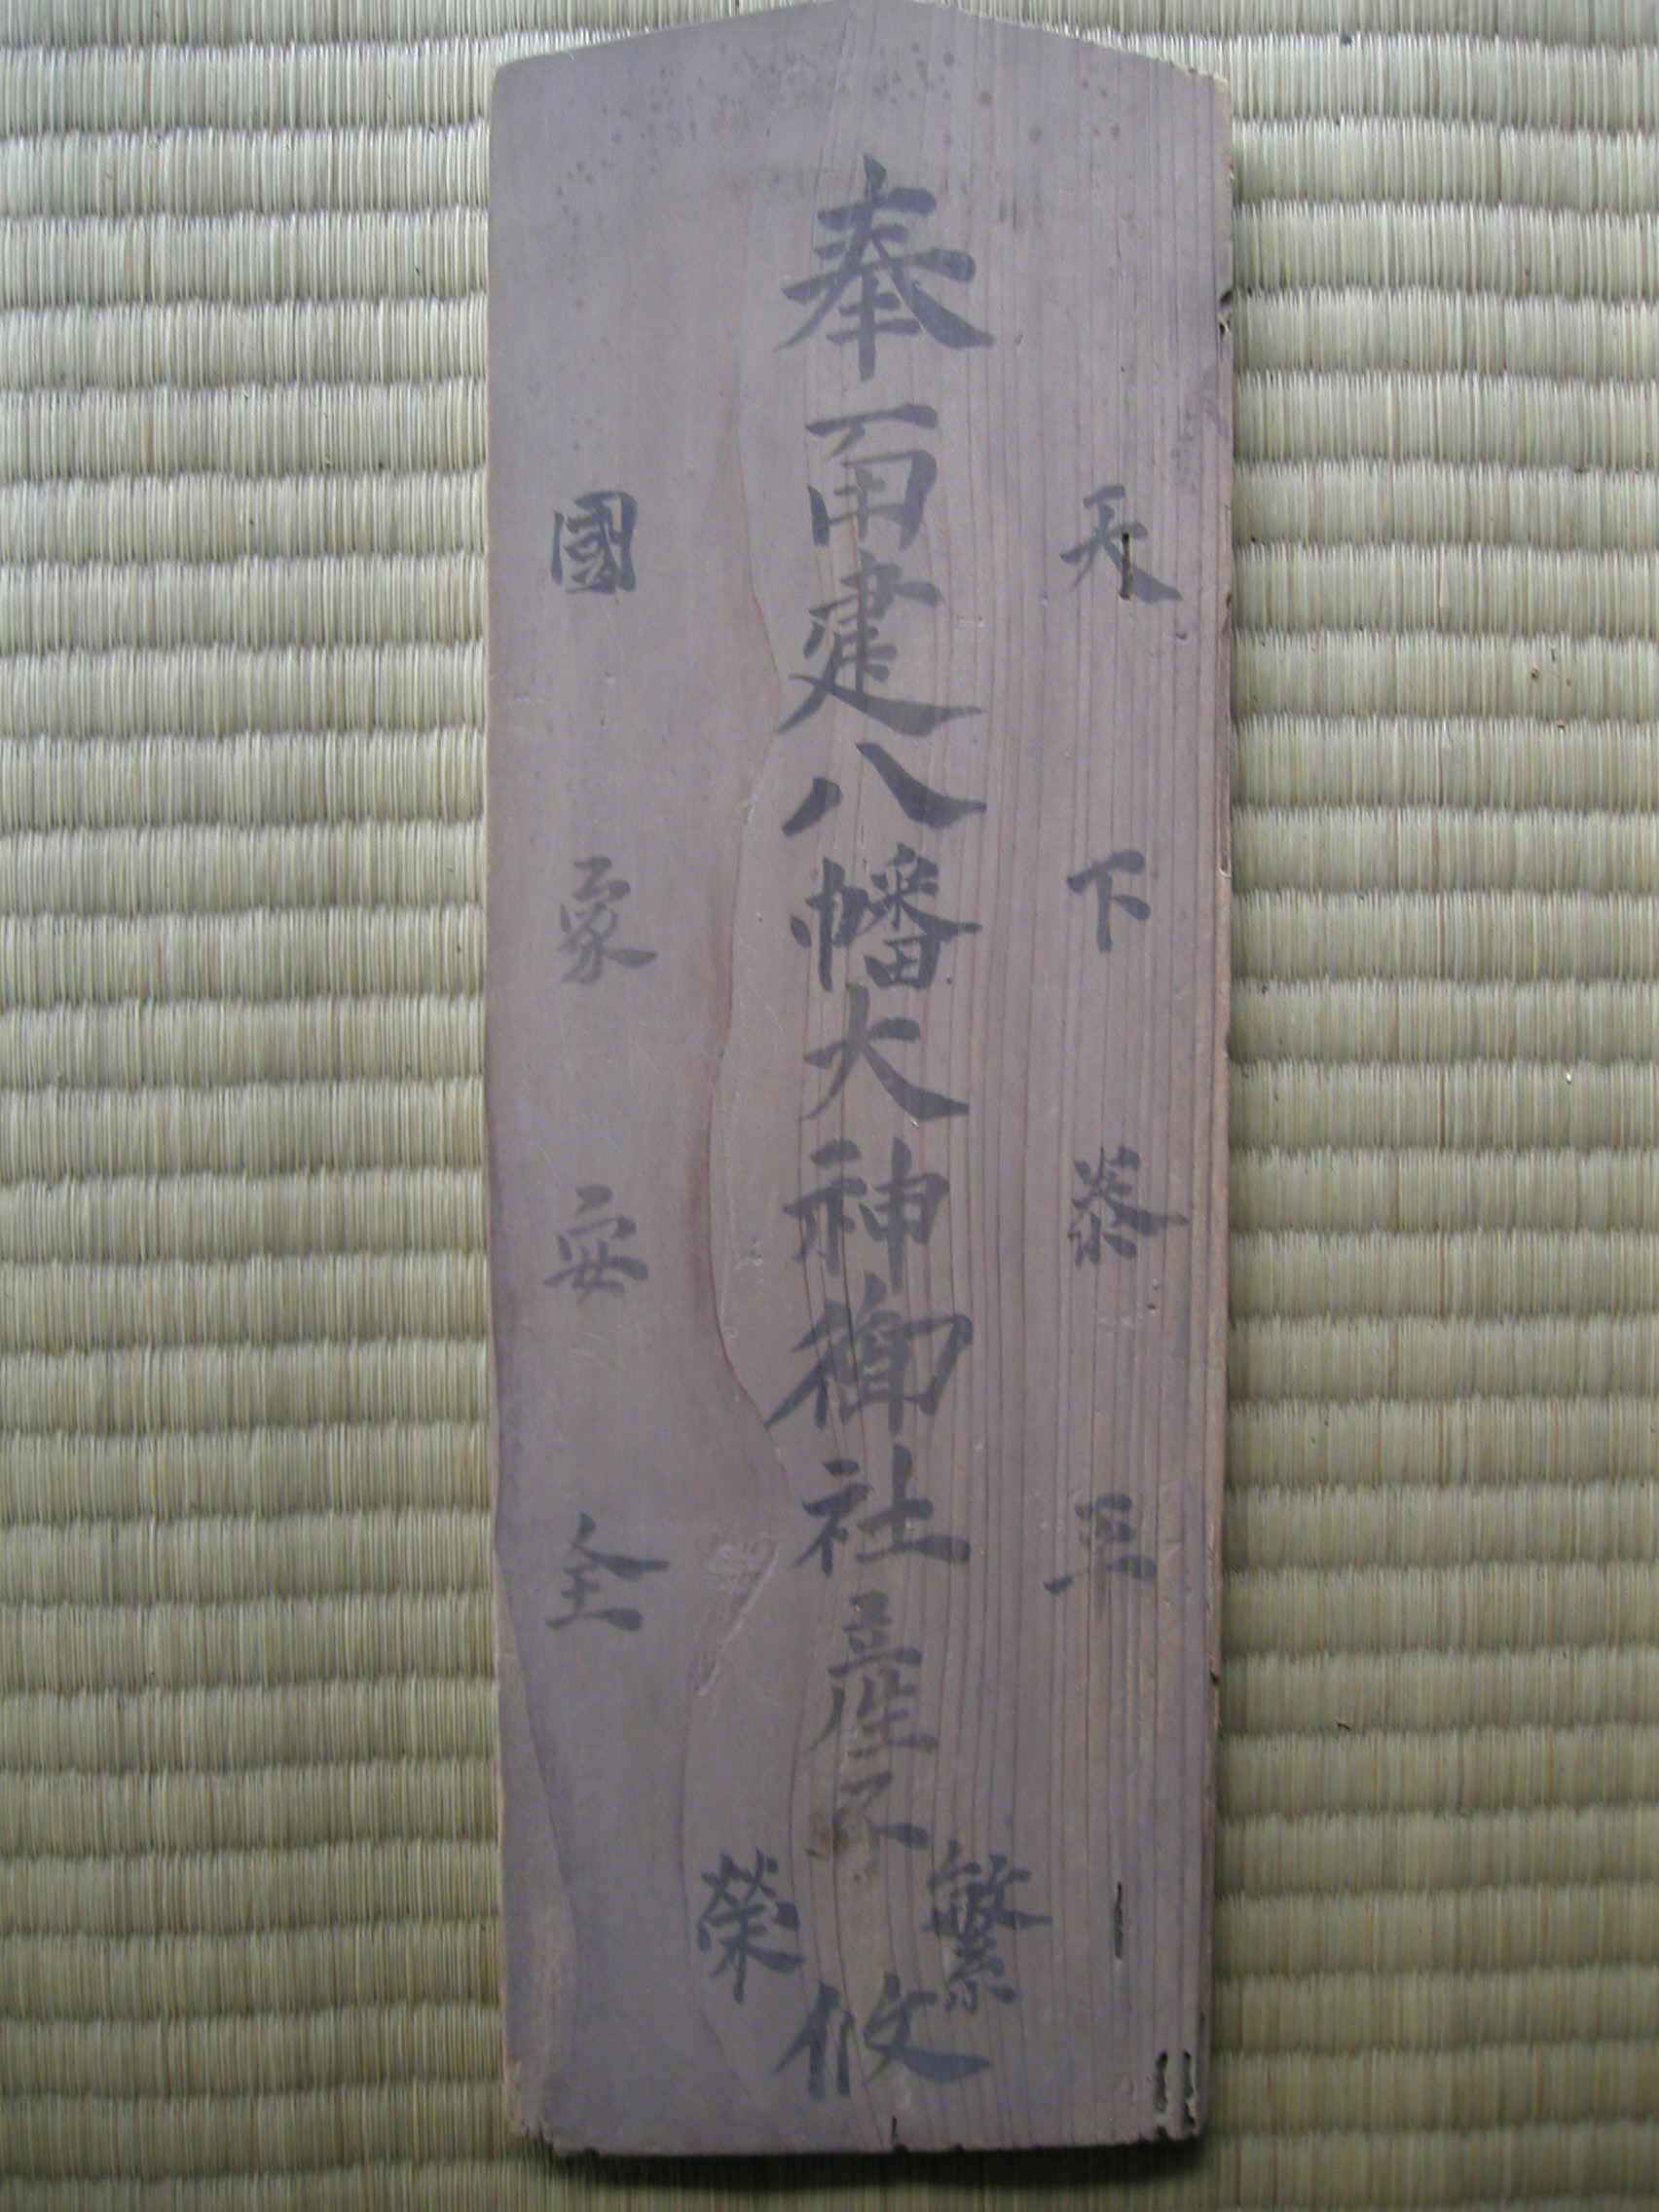 天下泰平
奉再建八幡大神御社立産子繁榮攸
國家安全